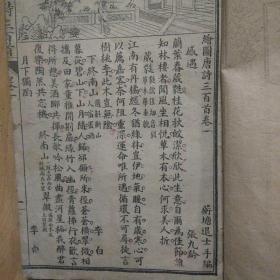 繪圖唐詩三百首卷一
蘅塘退士手編
感遇
張九齡
蘭葉春葳蕤桂花秋皎潔欣欣此生意自爾為佳節誰
知林棲者聞風坐相悅草木有本心何求美人折
江南有丹橘經冬猶綠林豈伊地氣暖自有歲寒心可
以薦嘉客奈何阻重深運命唯所遇循環不可尋徒言
樹桃李此木豈無陰
下終南山
李白
暮從碧山下山月隨人歸卻顧所來徑蒼蒼橫翠微相
攜及田家童稚開荊扉綠竹入幽徑青蘿拂行衣歡言
得所憩美酒聊共揮長歌吟松風曲盡河星稀我醉君
復樂陶然共忘機
月下獨酌
李白